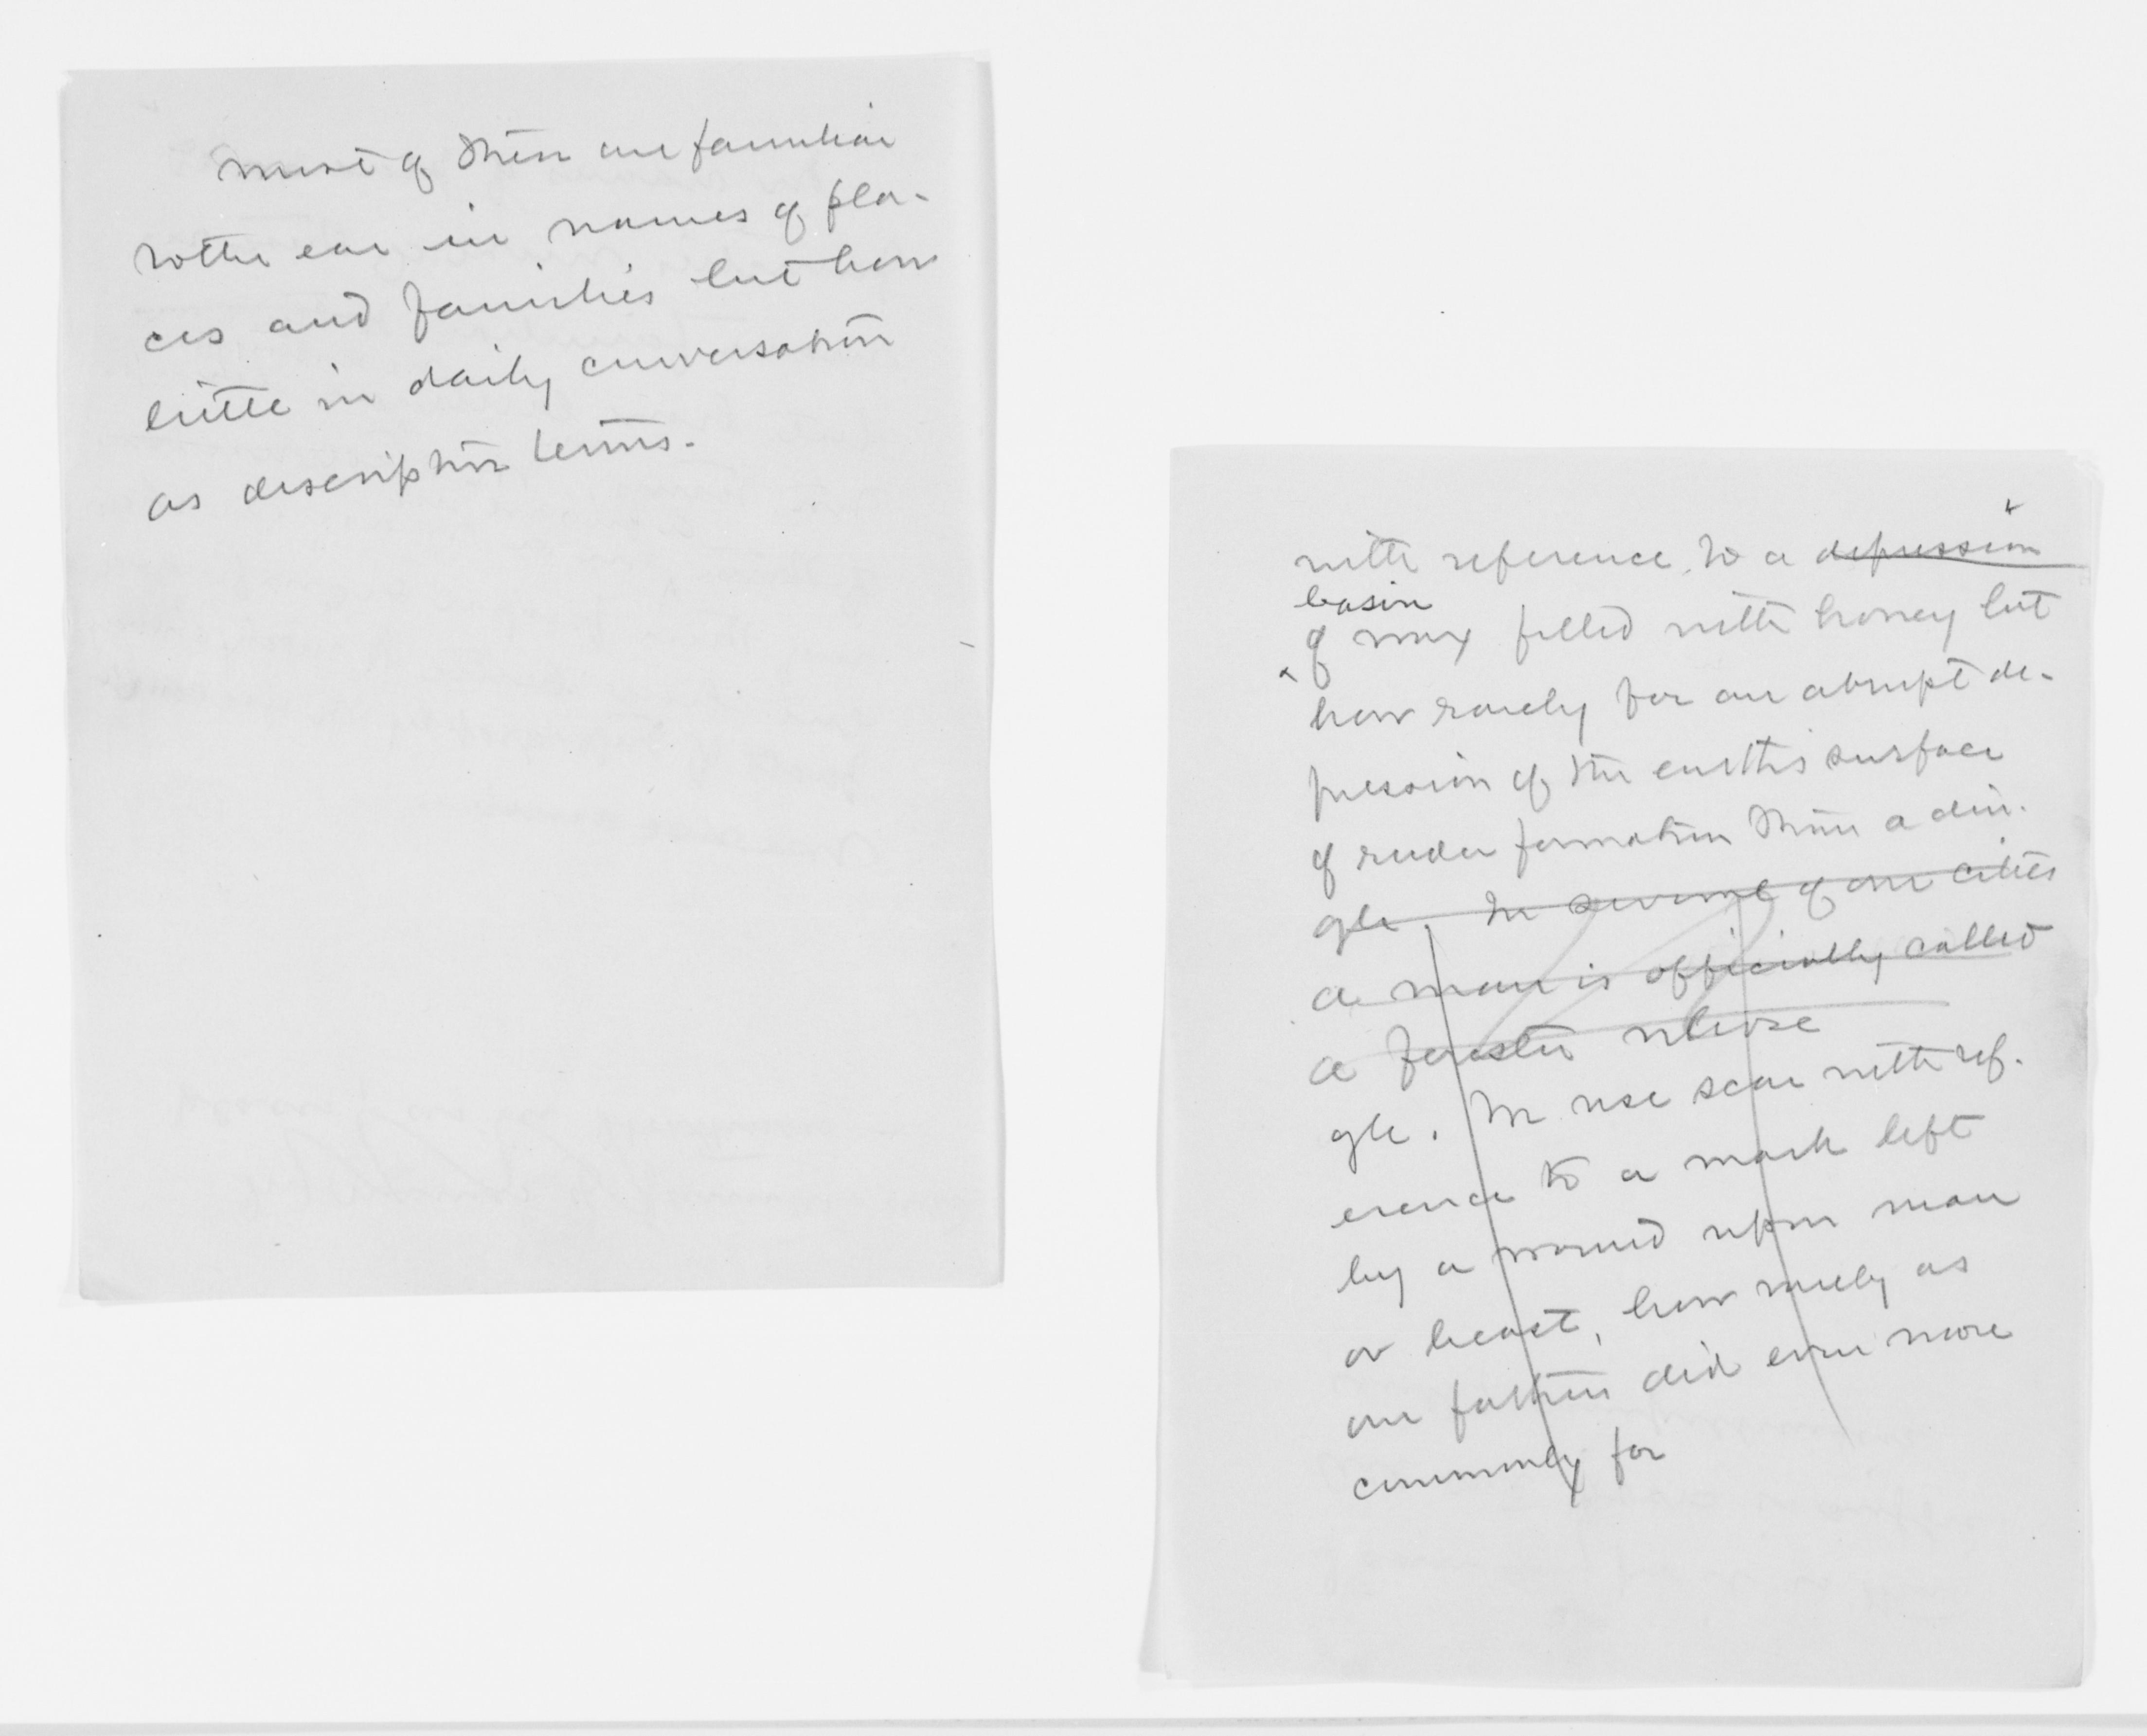 Most of them are familiar
to the ear in names of pla-
ces and families but how
little in daily conversation
as descriptive terms.
with reference to a depression
basin
of wax filled with honey but
how rarely for an abrupt de-
pression of the earth's surface
of ruder formation than a din-
gle. In several of our cities
a man is officially called
a forester whose
gle. We use scar with ref-
erence to a mark left
by a wound upon man
or beast, how rarely as
our fathers did even more
commonly for